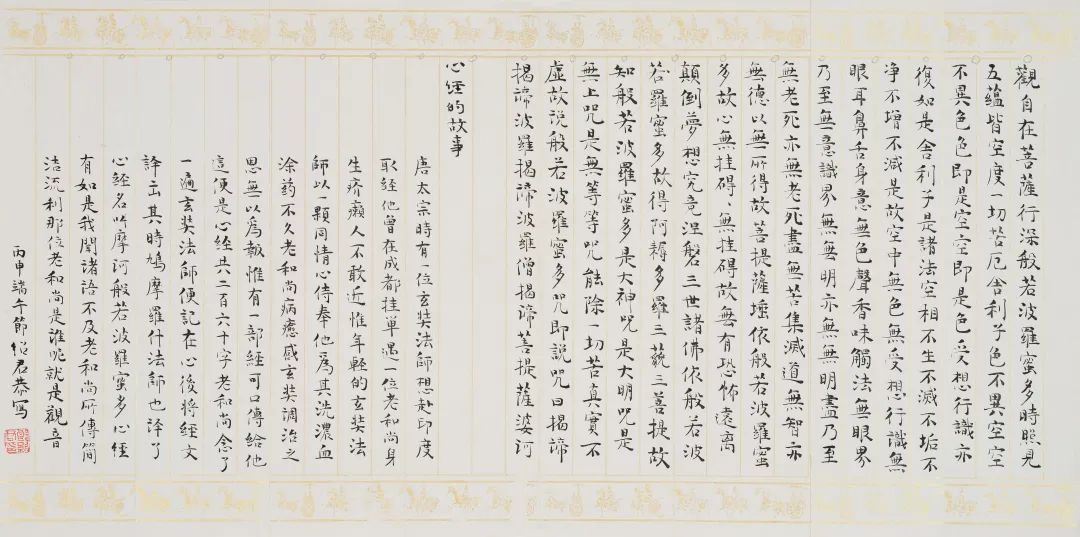 觀自在菩薩行深般若波羅蜜多時照見
五蘊皆空度一切苦厄舍利子色不異空空
不異色色即是空空即是色受想行識亦
復如是舍利子是諸法空相不生不滅不垢不
净不增不減是故空中無色無受想行識無
眼耳鼻舌身意無色聲香味觸法無眼界
乃至無意識界無無明亦無無明盡乃至
無老死亦無老死盡無苦集滅道無智亦
無德以無所得故菩提薩埵依般若波羅蜜
多故心無挂碍無挂碍故無有恐怖遠离
顛倒夢想究竟涅磐三世諸佛依般若波
若羅蜜多故得阿耨多羅三藐三菩提故
知般若波羅蜜多是大神咒是大明咒是
無上咒是無等等咒能除一切苦真實不
虛故說般若波羅蜜多咒即說咒曰揭諦
揭諦波羅揭諦波羅僧揭諦菩提薩婆訶
心经的故事
唐太宗時有一位玄奘法師想赴印度
取經他曾在成都挂單遇一位老和尚身
生疥癩人不敢近惟年輕的玄奘法
師以一顆同情心侍奉他為其洗濃血
涂药不久老和尚病癒感玄奘調治之
恩無以為報惟有一部經可口傳給他
這便是心经共二百六十字老和尚念了
一遍玄奘法師便記在心後將經文
譯出其時鳩摩羅什法師也譯了
心經名曰摩訶般若波羅蜜多心經
有如是我聞諸語不及老和尚所傳简
洁流利那位老和尚是誰呢就是觀音
丙申端午節紹君恭寫